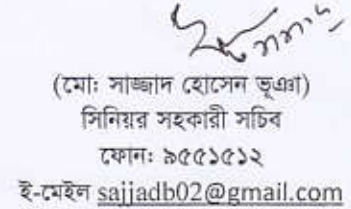 (মোঃ সাজ্জাদ হোসেন ভূঞা)
সিনিয়র সহকারী সচিব
ফোনঃ ৯৫৫১৫১২
ই-মেইল sajjadb02@gmail.com